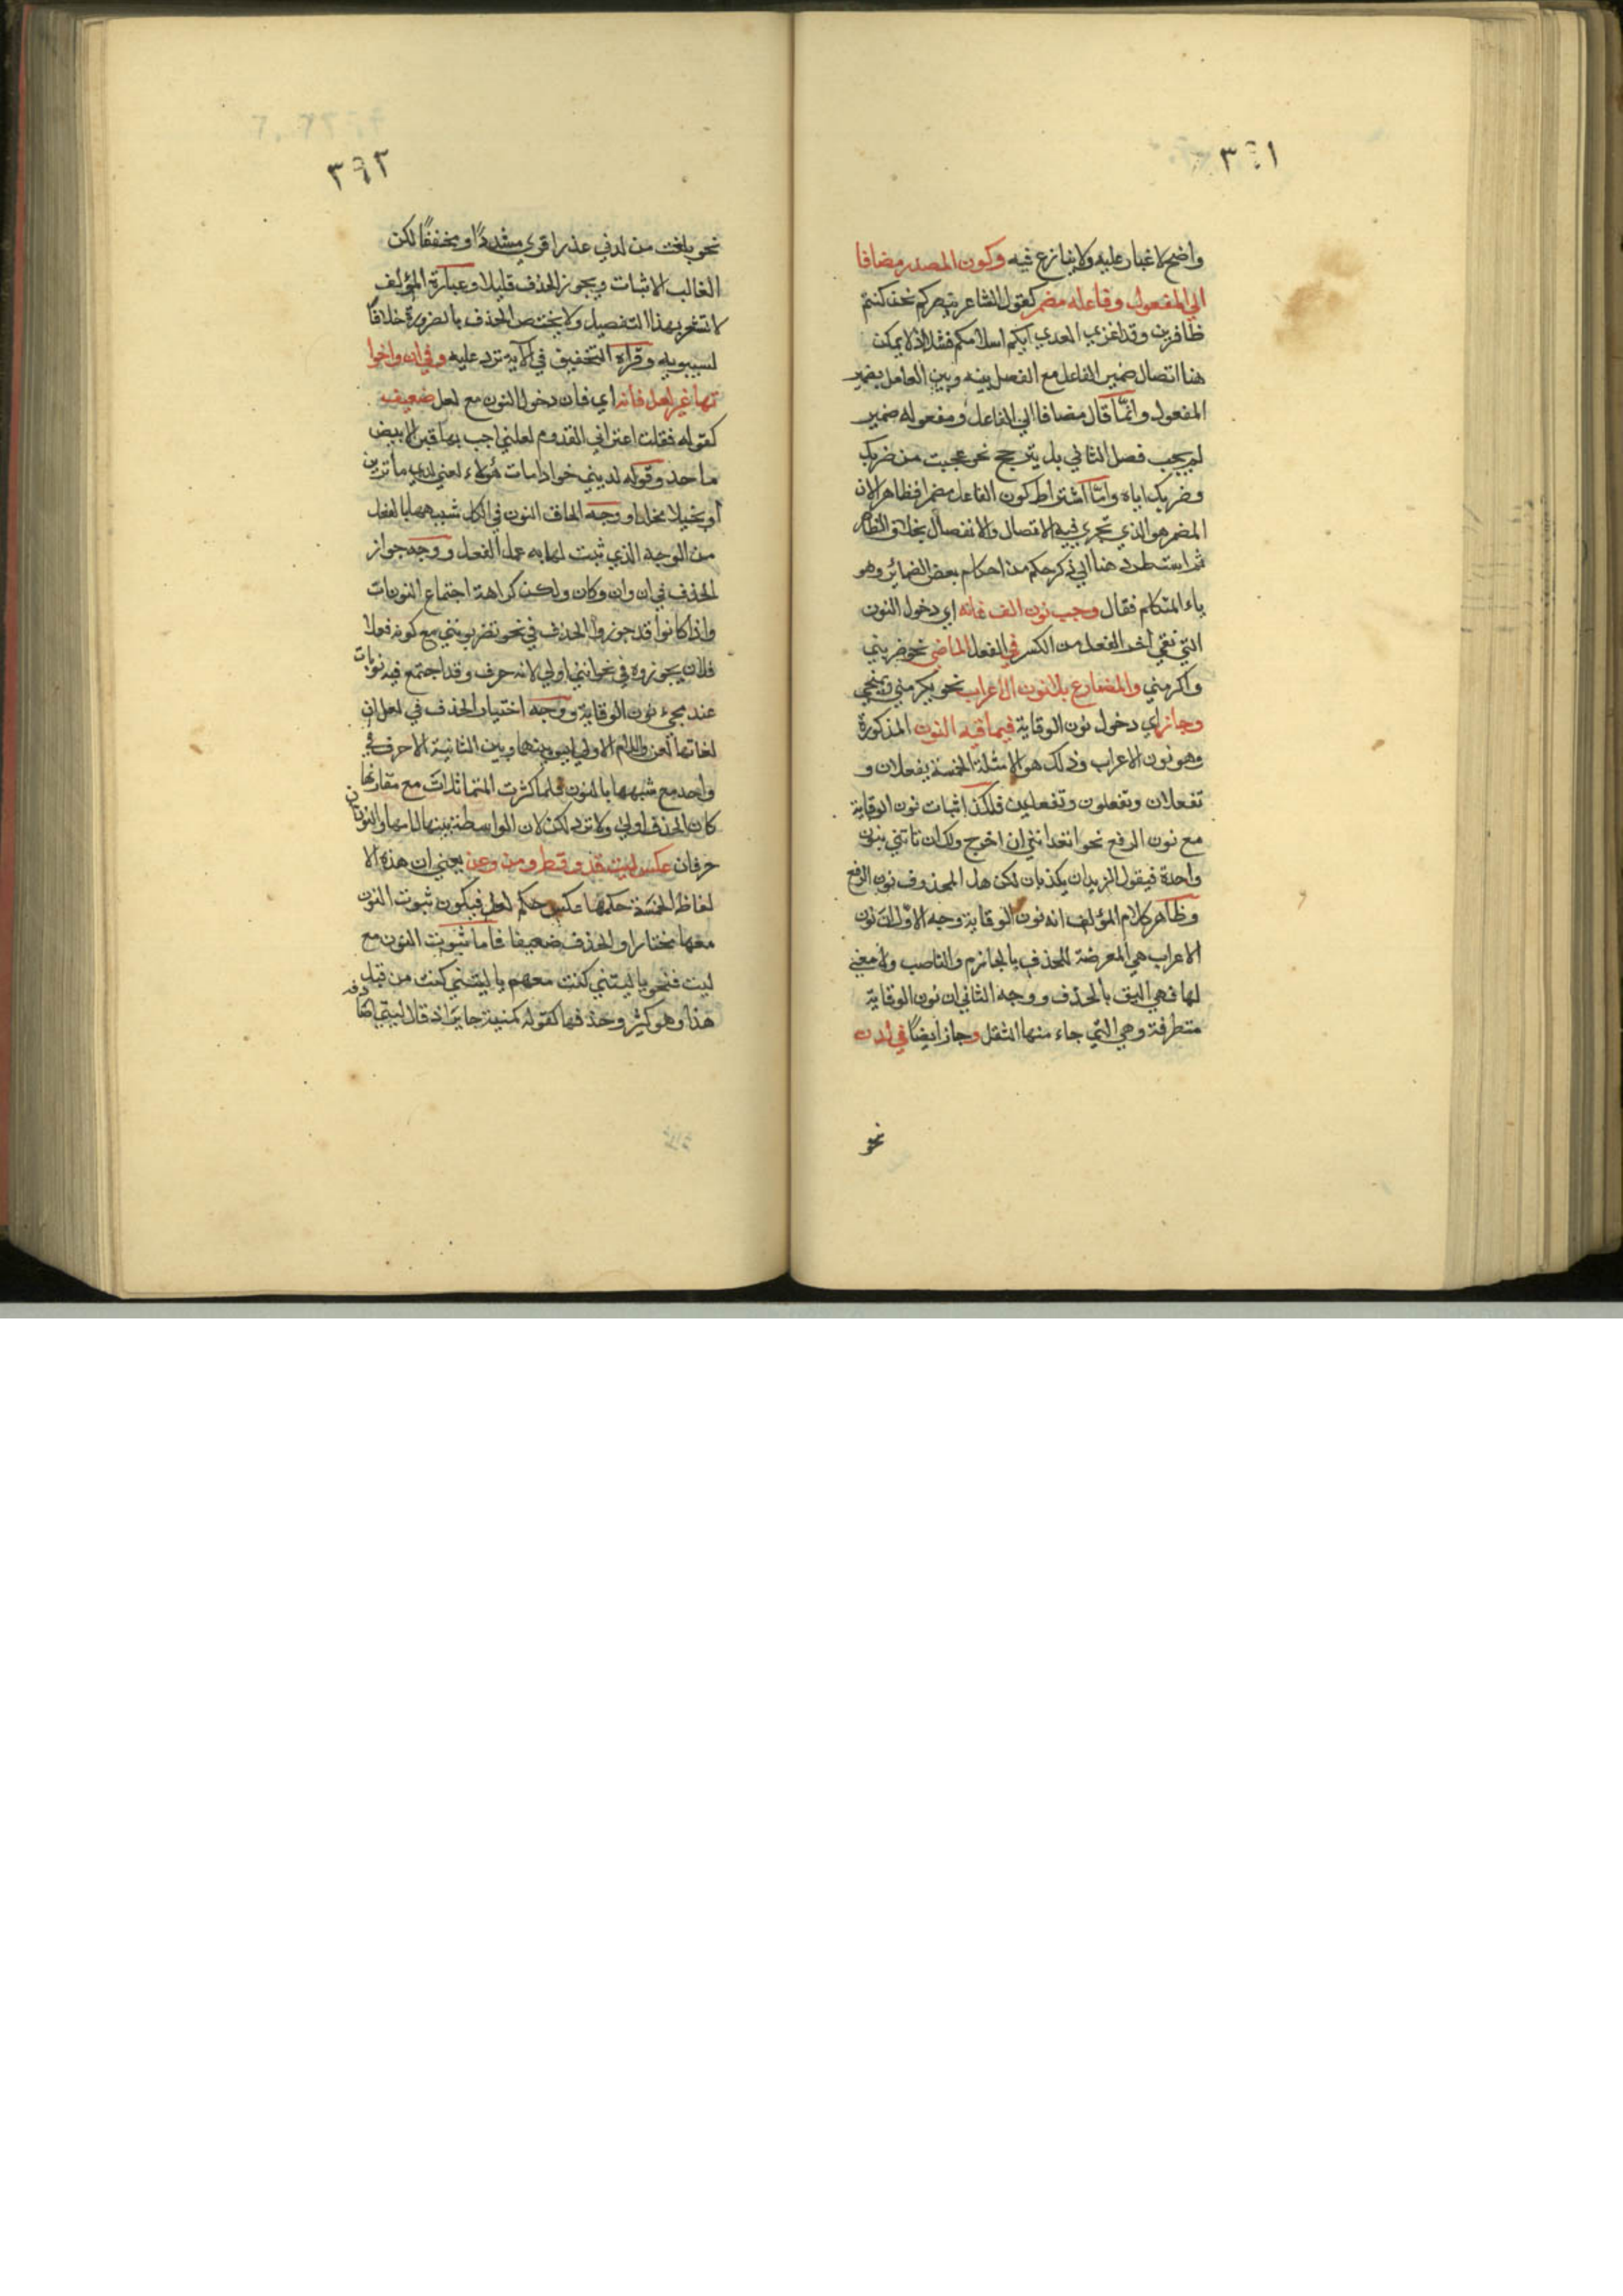 ٣٦١
واضح لا غبار عليه ولا ينازع فيه وكون المصدر مضافا
الي المفعول وفاعله مضمر كقول الشاعر بنصركم نحن كنتم
ظافرين وقد اغري العدي بكم استسلامكم فشلا اذ لا يمكن
هنا اتصال ضمير الفاعل مع الفصل بينه وبين العامل بضمير
المفعول وانما قال مضافا الي الفاعل ومفعوله ضمير
لم يجب فصل الثاني بل يترجح نحو عجبت من ضربك
وضربك اياه واما اشتراط كون الفاعل مضمرا فظاهر لان
المضمر هو الذي يجري فيه الاتصال والانفصال بخلاف الظاهر
ثم استطرد هنا الي ذكر حكم من احكام بعض الضمائر وهو
ياء المتكلم فقال وجب نون الف فانه اي دخول النون
التي تقي اخر الفعل من الكسر في الفعل الماضي نحو ضربني
واكرمني والمضارع بلا نون الاعراب نحو يكرمني وينجي
وجاز اي دخول نون الوقاية فيما فيه النون المذكورة
وهو نون الاعراب وذلك هو الامثلة الخمسة يفعلان و
تفعلان وتفعلون وتفعلين فلك اثبات نون الوقاية
مع نون الرفع نحو اتعدانني ان اخرج ولك ان تاتي بنون
واحدة فيقول الزيدان يكذبان لكن هل المحذوف نون الرفع
وظاهر كلام المؤلف انه نون الوقاية وجه الاول ان نون
الاعراب هي المعرضة للحذف بالجازم والناصب ولا معني
لها فهي اليق بالحذف ووجه الثاني ان نون الوقاية
متطرفة وهي التي جاء منها الثقل وجاز ايضًا في لدن
نحو
٣٦٢
نحو بلغت من لدني عذرا قري مشددًا ومخففًا لكن
الغالب الاثبات ويجوز الحذف قليلا وعبارة المؤلف
لا تشعر بهذا التفصيل ولا يختص الحذف بالضرورة خلافًا
لسيبويه وقراة التخفيف في الاية ترد عليه وفي ان واخوا
تها غير لعل فانه اي فان دخول النون مع لعل ضعيف
كقوله فقلت اعيراني القدوم لعلني اخط بها قبرا لابيض
ماجد وقوله اريني جوادا مات هزلا لعلني اري ما ترين
او بخيلا مخلدا ووجه الحاق النون في الكل شبهها بالفعل
من الوجه الذي ثبت لها به عمل الفعل ووجه جواز
الحذف في ان وان وكان ولكن كراهة اجتماع النونات
واذا كانوا قد جوزوا الحذف في نحو تضربونني مع كونه فعلا
فلان يجوزوه في نحو انني اولي لانه حرف وقد اجتمع فيه نونات
عند مجيء نون الوقاية ووجه اختيار الحذف في لعل ان
لغاتها لعن واللام الاولي ليس بينها وبين الثانية الا حرف
واحد مع شبهها بالنون فلما كثرت المتماثلات مع مقاربها
كان الحذف اولي ولا ترد لكن لان الواسطة بين لامها والنون
حرفان عكس ليت قد وقط ومن وعن يعني ان هذه الا
لفاظ الخمسة حكمها عكس حكم لعل فيكون ثبوت النون
معها مختارا والحذف ضعيفا فاما ثبوت النون مع
ليت فنحو يا ليتني كنت معهم يا ليتني كنت من قبل
هذا وهو كثير وحذفها كقوله كمنية جابر اذ قال ليتي اصادفه